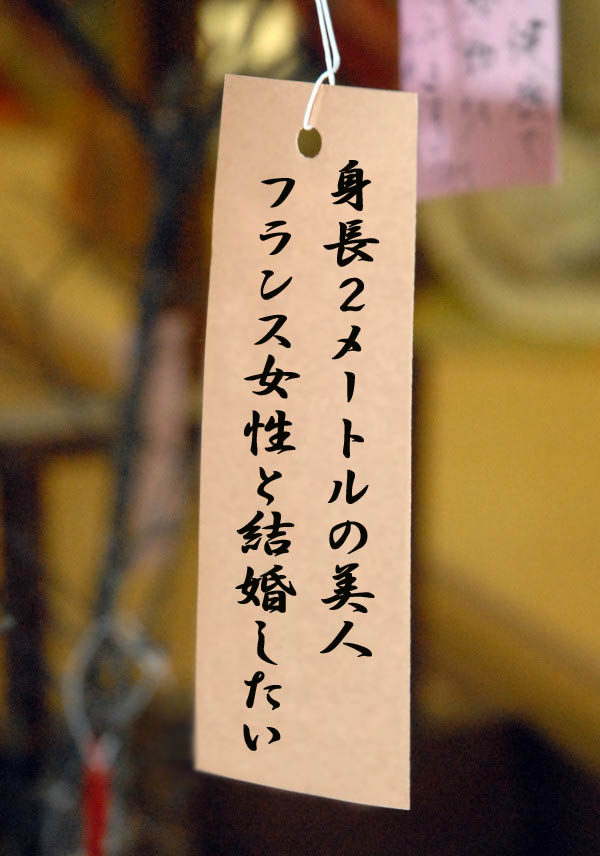 身長2メートルの美人
フランス女性と結婚したい